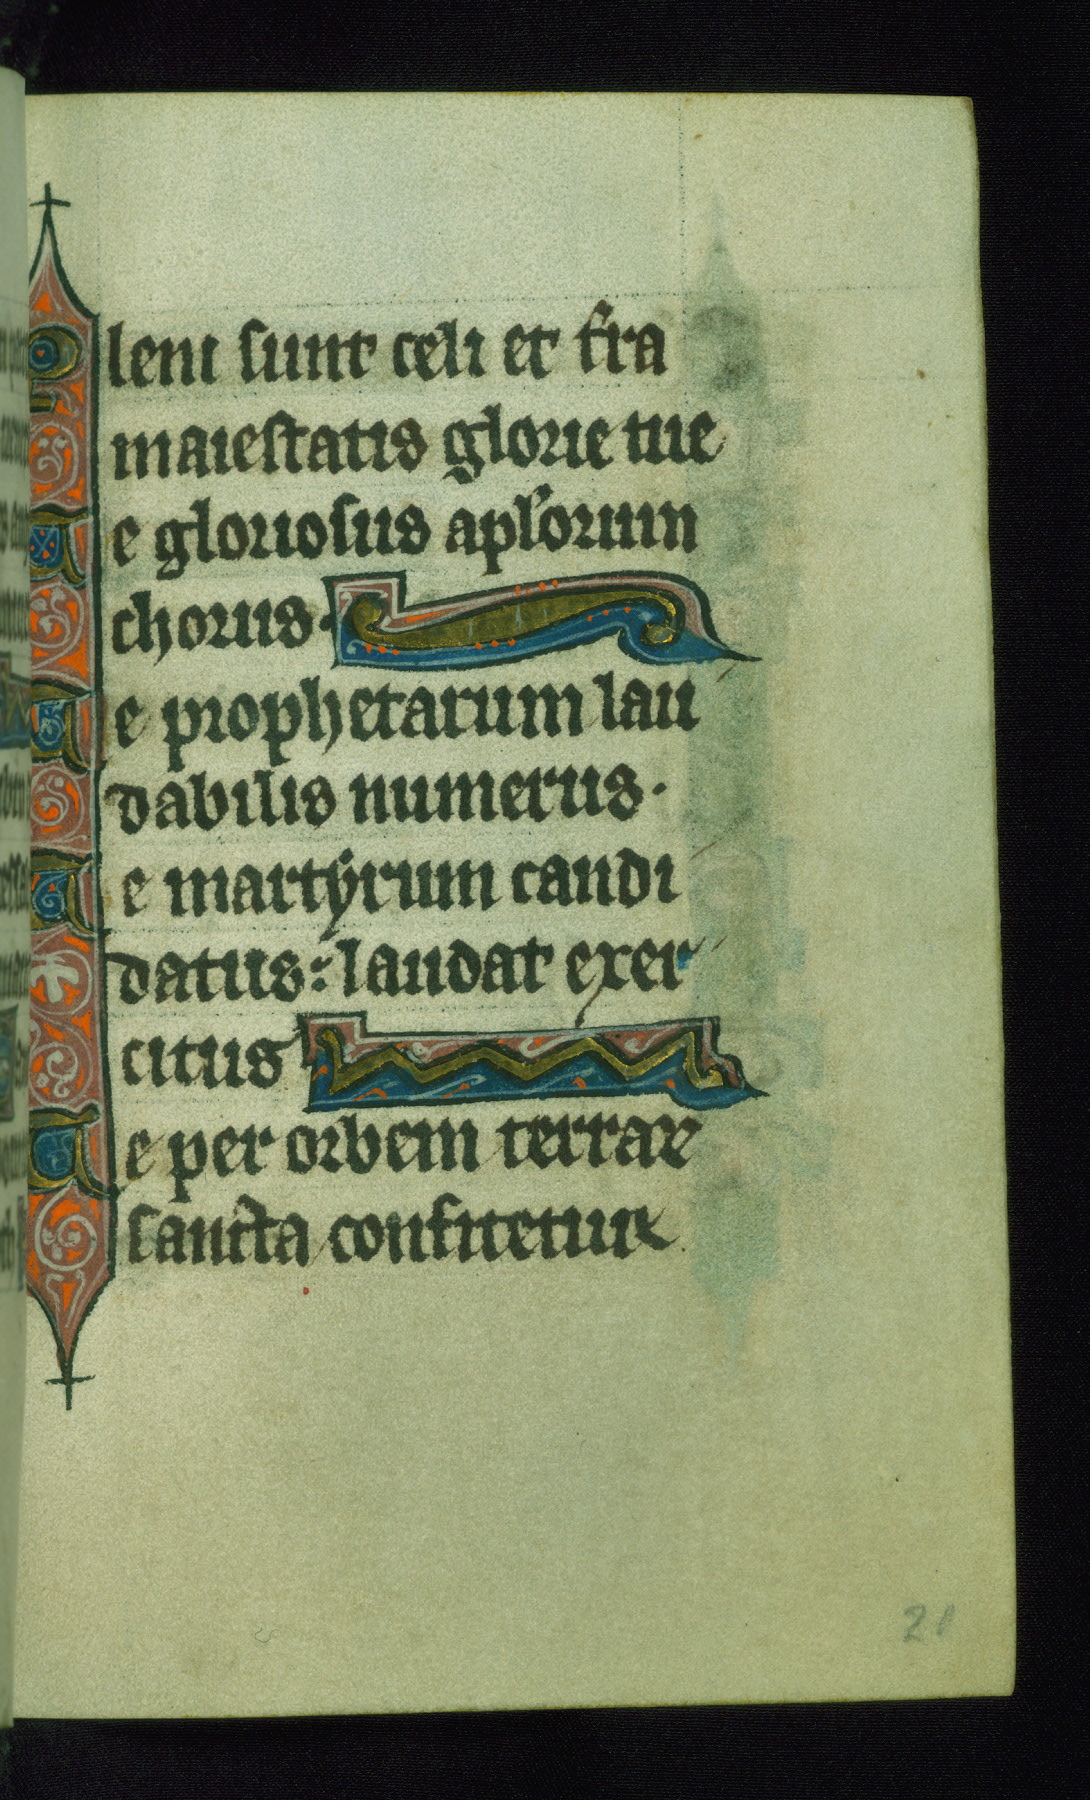 Pleni sunt celi et t̃ra
maiestatis glorie tue
Te gloriosus apl̃orum
chorus·
Te prophetarum lau
dabilis numerus·
Te martẏrum candi
datus: laudat exer
citus
Te per orbem terrae
sancta confitetur
20